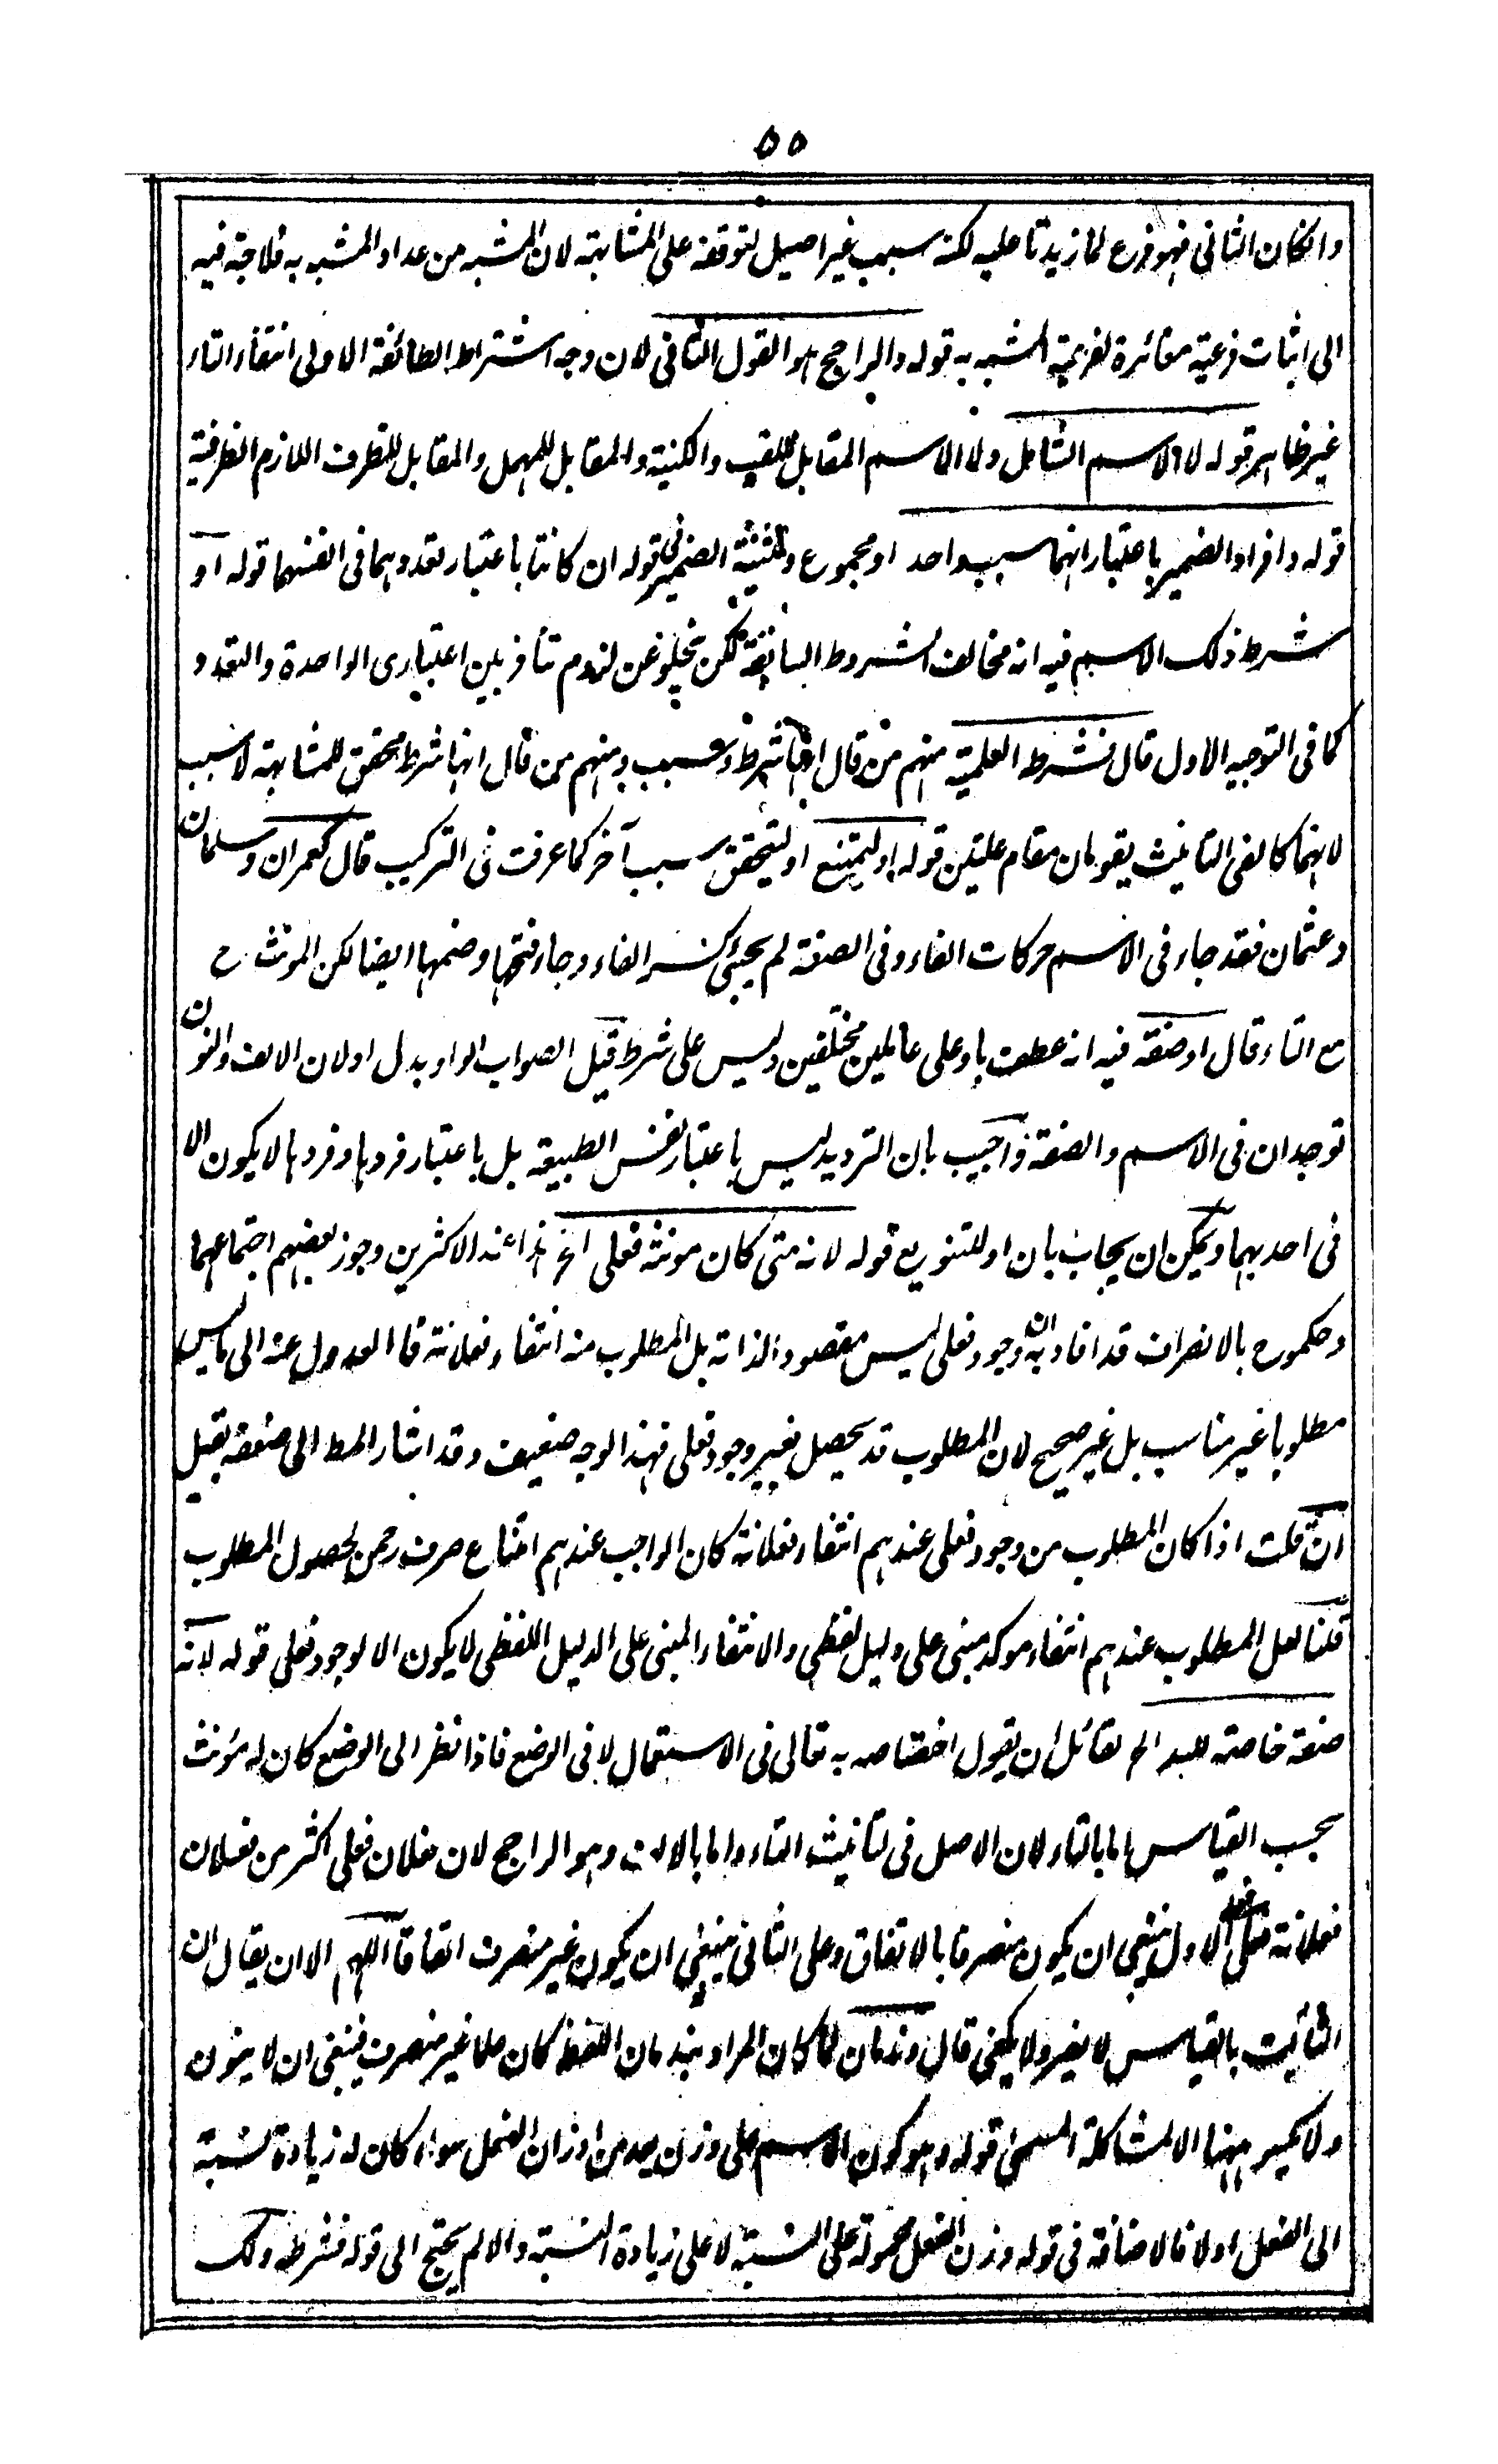 ٥٥
وان كان الثانى فهو فرع لما زيدتا عليه لكنه سبب غير اصيل لتوقفه على المشابهة لان المشبه من عداد المشبه به فلا حاجة فيه
الى اثبات فرعية مغائرة لفرعية المشبه به قوله والراجح هو القول الثانى لان وجه اشتراط الطائفة الاولى انتفاء التاء
غير ظاهر قوله لا الاسم الشامل ولا الاسم المقابل للقب والكنية والمقابل للمهمل والمقابل للظرف اللازم الظرفية
قوله وافراد الضمير باعتبار انهما سبب واحد او مجموع وتثنية الضمير فى قوله ان كانتا باعتبار تعددهما فى انفسهما قوله او
شرط ذلك الاسم فيه انه مخالف لشروط السابقة لكن يخلو عن لزوم تنافر بين اعتبارى الواحدة والتعدد
كما فى التوجيه الاول قال فشرط العلمية منهم من قال انها شرط وسبب ومنهم من قال انها شرط محقق للمشابهة لا سبب
لانهما كالفى التانيث يقومان مقام علتين قوله او ليمتنع او ليتحقق سبب آخر كما عرفت فى التركيب قال كعمران وسلمان
وعثمان فقد جاء فى الاسم حركات الفاء وفى الصفة لم يجئ كسر الفاء وجاء فتحها وضمها ايضا لكن المونث ح
مع التاء قال او صفة فيه انه عطف باو على عاملين مختلفين وليس على شرط قيل الصواب الواو بدل او لان الالف والنون
توجدان فى الاسم والصفة واجيب بان الترديد ليس باعتبار نفس الطبيعة بل باعتبار فردها وفردها لا يكون الا
فى احدهما ويمكن ان يجاب بان او للتنويع قوله لانه متى كان مونثه فعلى اخ هذا عند الاكثرين وجوز بعضهم اجتماعهما
وحكموا ح بالانصراف قد افاد به ان وجود فعلى ليس مقصودا لذاته بل المطلوب منه انتفاء فعلانة فالعدول عنه الى ما ليس
مطلوبا غير مناسب بل غير صحيح لان المطلوب قد يحصل بغير وجود فعلى فهذا الوجه ضعيف وقد اشار المط الى ضعفه بقيل
ان قلت اذا كان المطلوب من وجود فعلى عندهم انتفاء فعلانة كان الواجب عندهم امتناع صرف رحمن لحصول المطلوب
قلنا لعل المطلوب عندهم انتفاء موكد مبنى على دليل لفظى والانتفاء المبنى على الدليل اللفظى لا يكون الا لوجود فعلى قوله لانه
صفة خاصة لله الخ لقائل ان يقول اختصاصه به تعالى فى الاستعمال لا فى الوضع فاذا نظر الى الوضع كان له مؤنث
بحسب القياس اما بالتاء لان الاصل فى التأنيث التاء واما بالالف وهو الراجح لان فعلان فعلى اكثر من فعلان
فعلانة فعلى الاول ينبغى ان يكون منصرفا بالاتفاق وعلى الثانى ينبغى ان يكون غير منصرف اتفاقا اللهم الا ان يقال ان
الثابت بالقياس لا يضر ولا يكفى قال وندمان لما كان المراد بندمان اللفظ كان علما غير منصرف فينبغى ان لا ينون
ولا يكسر ههنا الا لمشاكلة المسمى قوله وهو كون الاسم على وزن يعد من اوزان الفعل سواء كان له زيادة نسبة
الى الفعل او لا فالاضافة فى قوله وزن الفعل محمولة على النسبة لا على زيادة النسبة والا لم يحتج الى قوله فشرطه ولك